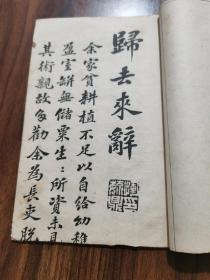 歸去來辭
余家貧耕植不足以自給幼稚
盈室缾無儲粟生:所資未見
其術親故多勸余為長吏脫